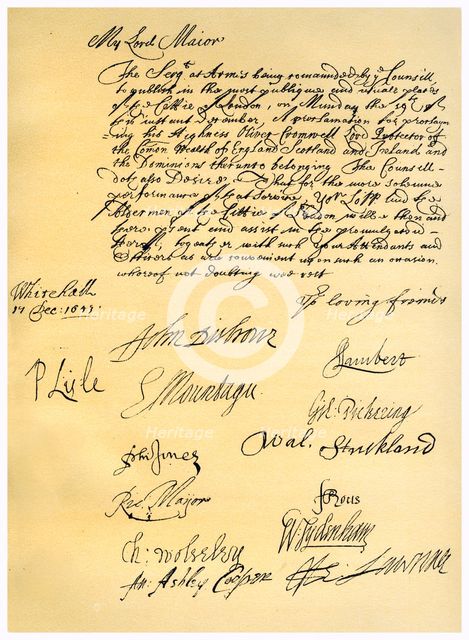 My Lord Maior
The Serg.t at Armes being comaunded by ye Counsill
to publish in the most publique and usuall places
of the Cittie of London, on Munday the 19th of
this instant December, A proclamation for proclaym
ing his Highness Oliver Cromwell Lord Protector of
the Comon Wealth of England Scotland and Ireland and
the Dominions thereunto belonging The Counsill
doth also Desire That for the more solemne
performance of that Service, Yor Lopp and the
Aldermen of the Cittie of London will be then and
there present and assist in the
together with such Your Attendants and
Officers as are convenient upon such an occasion
whereof not doubting wee rest
Yor loving friends
Whitehall
17 Dec: 1653.
John Disbrowe
J Lambert
P Lisle
E Mountagu
Gil: Pickering
Wal. Strickland
John Jones
F Rous
Ric Maijor
W. Sydenham
Ch: Wolseley
An: Ashley Cooper
He: Lawrence
Heritage
Heritage
Heritage
Heritage